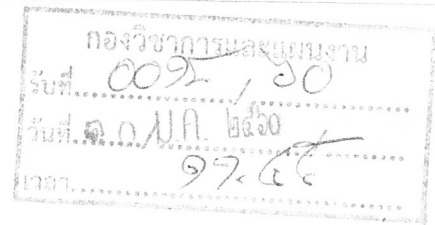 กองวิชาการและแผนงาน
รับที่ / ๖๐
วันที่ ๑๐ ม.ค. ๒๕๖๐
เวลา